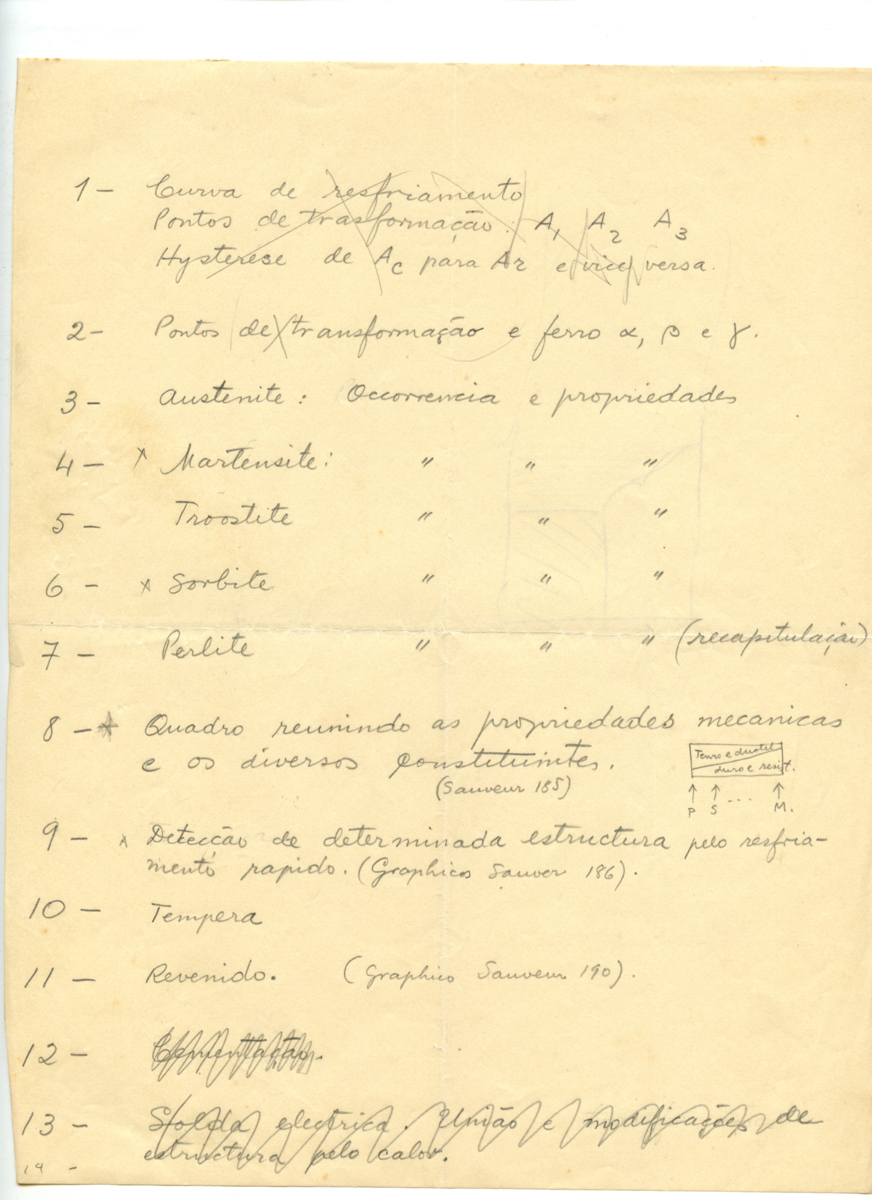 1 - Curva de resfriamento
Pontos de trasformação. A1 A2 A3
Hysterese de Ac para Ar e vice versa.
2 - Pontos de transformação e ferro α, β e γ.
3 - Austenite: Occorrencia e propriedades
4 - x Martensite: " " "
5 - Troostite " " "
6 - x Sorbite " " "
7 - Perlite " " " (recapitulação)
8 - x Quadro reunindo as propriedades mecanicas
e os diversos constituintes.
(Sauveur 185)
Tenro e ductil
duro e resist.
↑ ↑ ↑
P S ... M.
9 - x Detecção de determinada estructura pelo resfria-
mento rapido. (Graphicos Sauver 186).
10 - Tempera
11 - Revenido. (Graphico Sauveur 190).
12 - Cementação.
13 - Solda electrica. União e modificações de
estructura pelo calor.
14 -